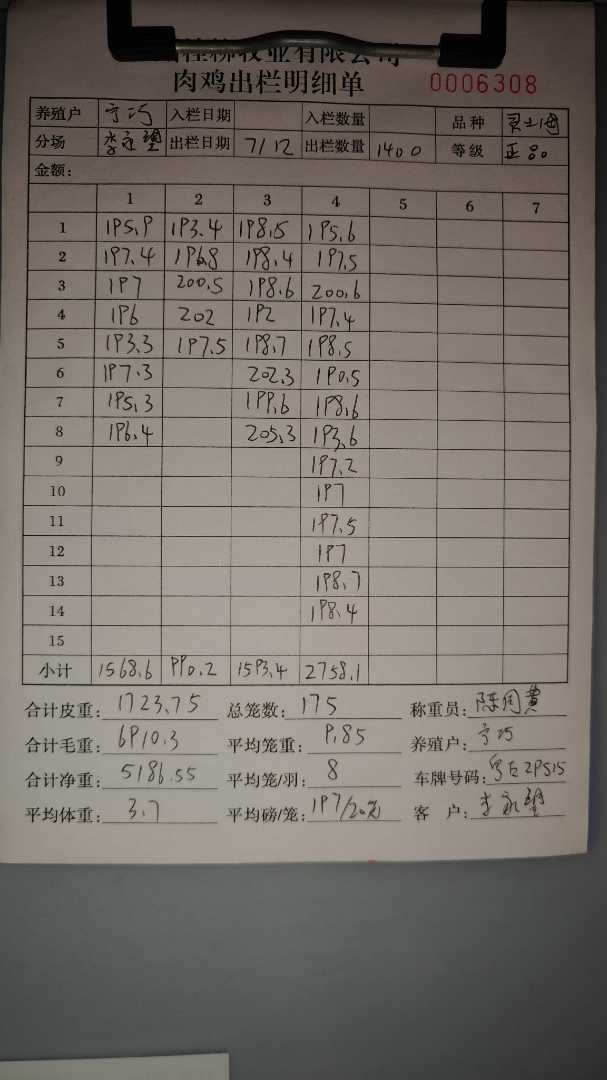 桂柳牧业有限公司
肉鸡出栏明细单 0006308
养殖户 宁巧 入栏日期 入栏数量 品种
分场 李永望 出栏日期 7/12 出栏数量 1400 等级 正品。
金额：
1 2 3 4 5 6 7
1 195.9 193.4 198.5 195.6
2 197.4 196.8 198.4 197.5
3 197 200.5 198.6 200.6
4 196 202 192 197.4
5 193.3 197.5 198.7 198.5
6 197.3 202.3 190.5
7 195.3 199.6 198.6
8 196.4 205.3 193.6
9 197.2
10 197
11 197.5
12 197
13 198.7
14 198.4
15
小计 1568.6 990.2 1593.4 2758.1
合计皮重：1723.75 总笼数：175 称重员：
合计毛重：6910.3 平均笼重：9.85 养殖户：宁巧
合计净重：5186.55 平均笼/羽：8 车牌号码：
平均体重：3.7 平均磅/笼：197/20 客 户：李永望